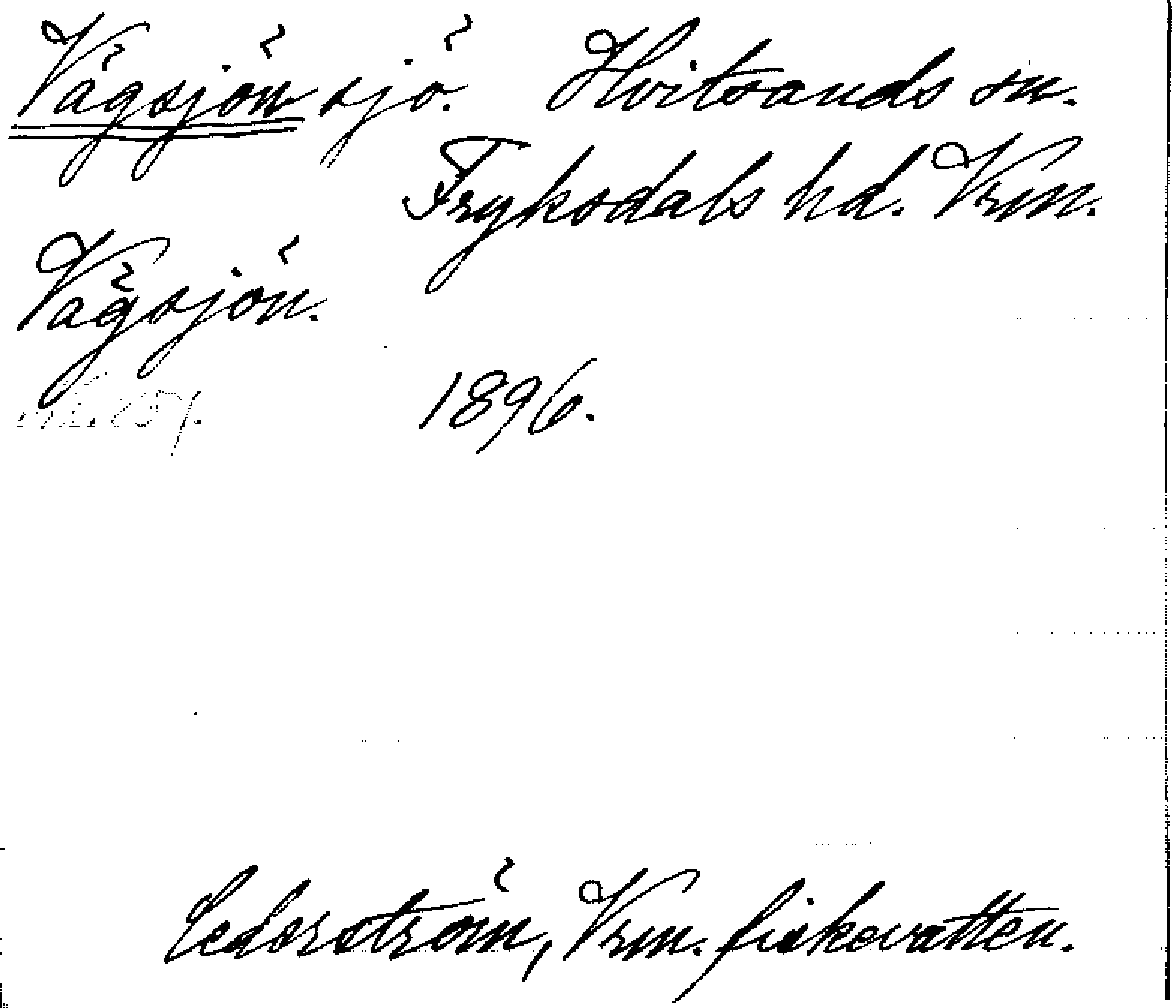 Vågsjön sjö. Hvitsands sn.
Fryksdals hd. Vrm.
Vågsjön.
1896.
Cederström, Vrm. fiskevatten.